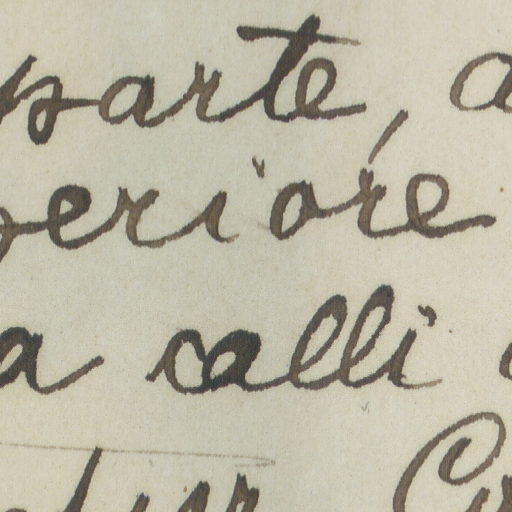 parte, a
periore
a calli